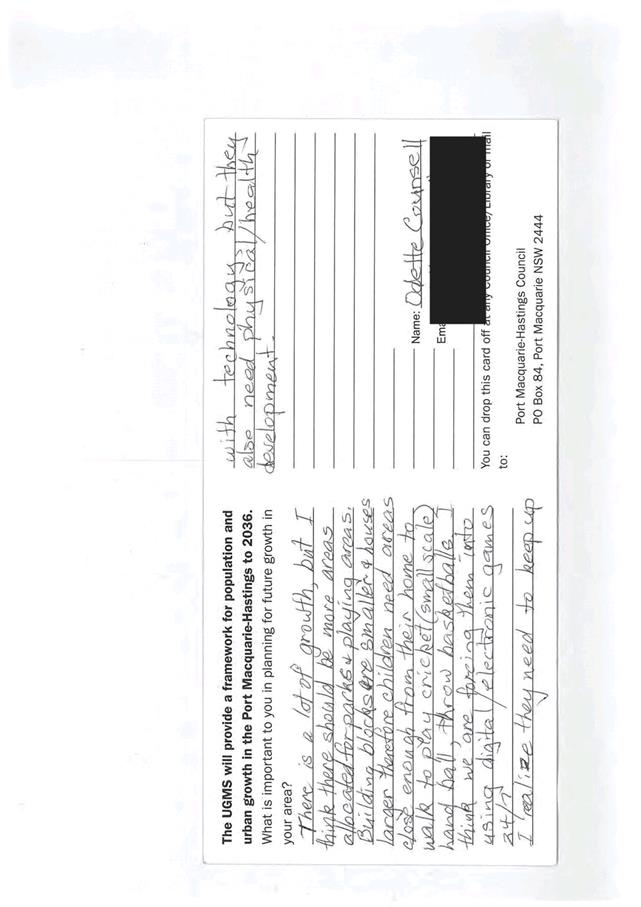 The UGMS will provide a framework for population and
urban growth in the Port Macquarie-Hastings to 2036.
What is important to you in planning for future growth in
your area?
There is a lot of growth, but I
think there should be more areas
allocated for parks & playing areas.
Building blocks are smaller & houses
larger therefore children need areas
close enough from their home to
walk to play cricket (small scale)
hand ball, throw basketballs. I
think we are forcing them into
using digital/electronic games
24/7
I realize they need to keep up
with technology, but they
also need physical/health
development.
Name: Odette Counsell
Ema
You can drop this card off at any Council Office/Library or mail
to:
Port Macquarie-Hastings Council
PO Box 84, Port Macquarie NSW 2444